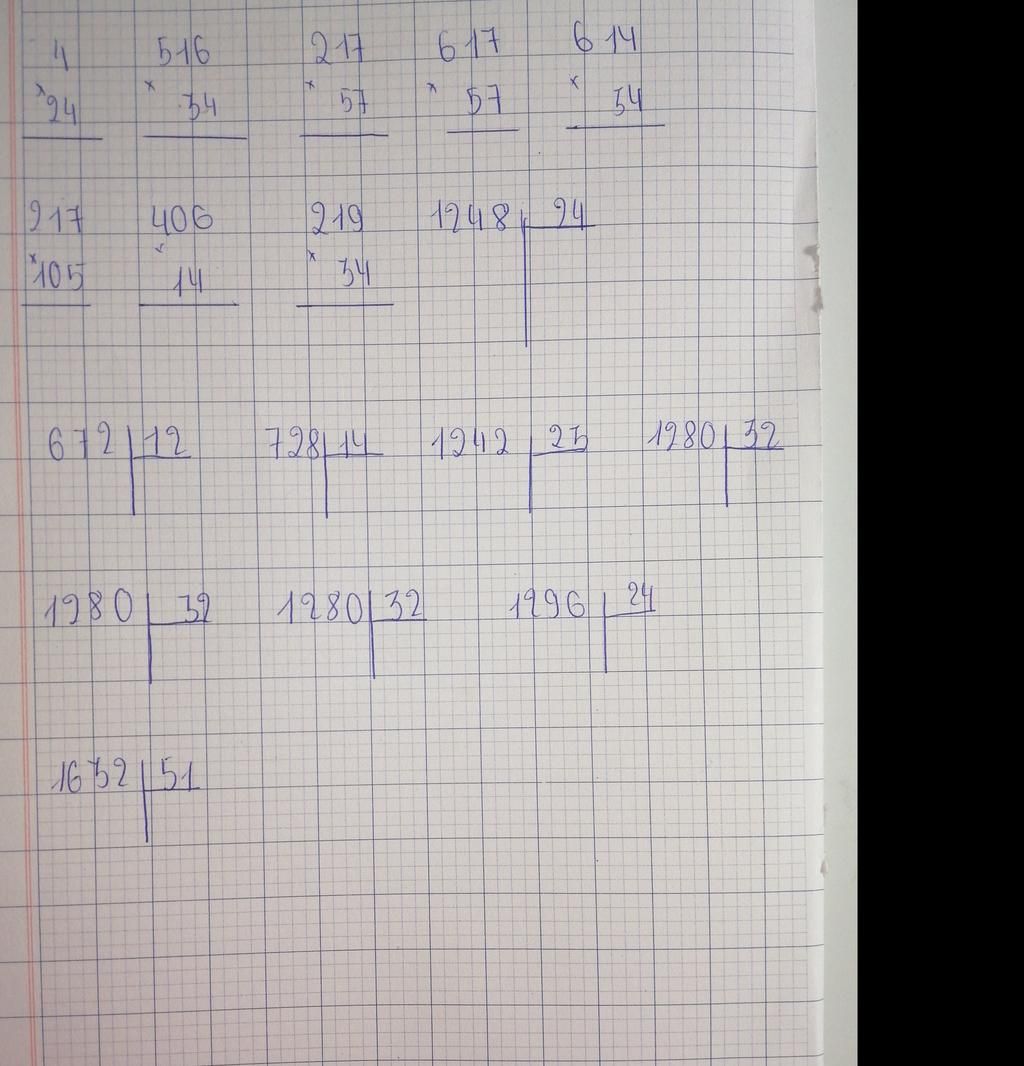 4 516 217 617 614
×24 ×34 ×57 ×57 ×34
217 406 219 1248 24
×105 ×14 ×34
672 12 728 14 1242 23 1280 32
1280 32 1280 32 1296 24
1632 51